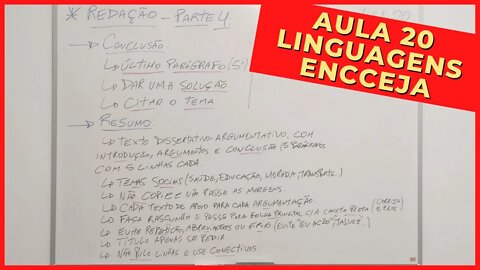 * REDAÇÃO - PARTE 4
→ CONCLUSÃO
↳ ÚLTIMO PARÁGRAFO (5º)
↳ DAR UMA SOLUÇÃO
↳ CITAR O TEMA
→ RESUMO:
↳ TEXTO DISSERTATIVO-ARGUMENTATIVO, COM
INTRODUÇÃO, ARGUMENTOS E CONCLUSÃO (5 PARÁGRAFOS
COM 5 LINHAS CADA.
↳ TEMAS SOCIAIS (SAÚDE, EDUCAÇÃO, MORADIA, TRANSPORTE..)
↳ NÃO COPIE E NÃO PASSE AS MARGENS.
↳ CADA TEXTO DE APOIO PARA CADA ARGUMENTAÇÃO.
↳ FAÇA RASCUNHO E PASSE PARA FOLHA PRINCIPAL C/ A CANETA PRETA (CORRIJA ERROS)
↳ EVITE REPETIÇÃO, ABREVIAÇÕES OU ERROS (EVITE "EU ACHO", "TALVEZ")
↳ TÍTULO APENAS SE PEDIR
↳ NÃO PULE LINHAS E USE CONECTIVOS.
20
AULA 20
LINGUAGENS
ENCCEJA